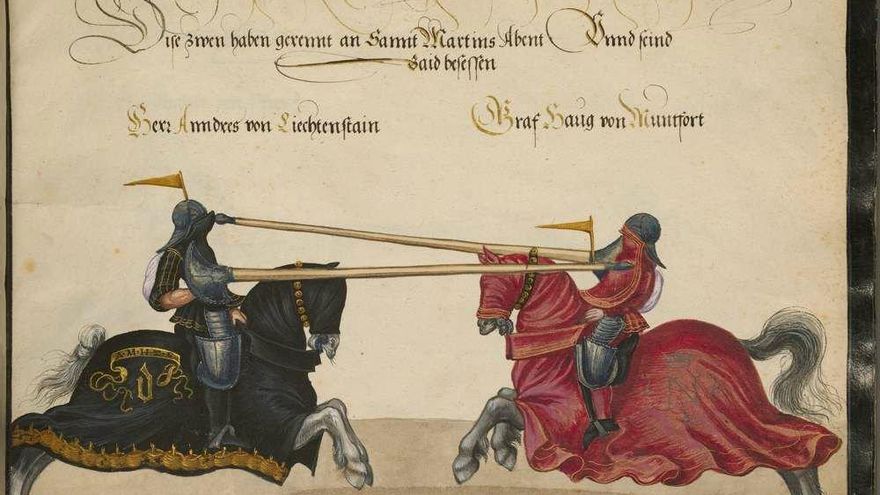 Dise zwen haben gerennt an Sannt Martins Abent Vnnd seind
Baid besessen
Herr Anndres von Liechtenstain
Graf Haug von Muntfort